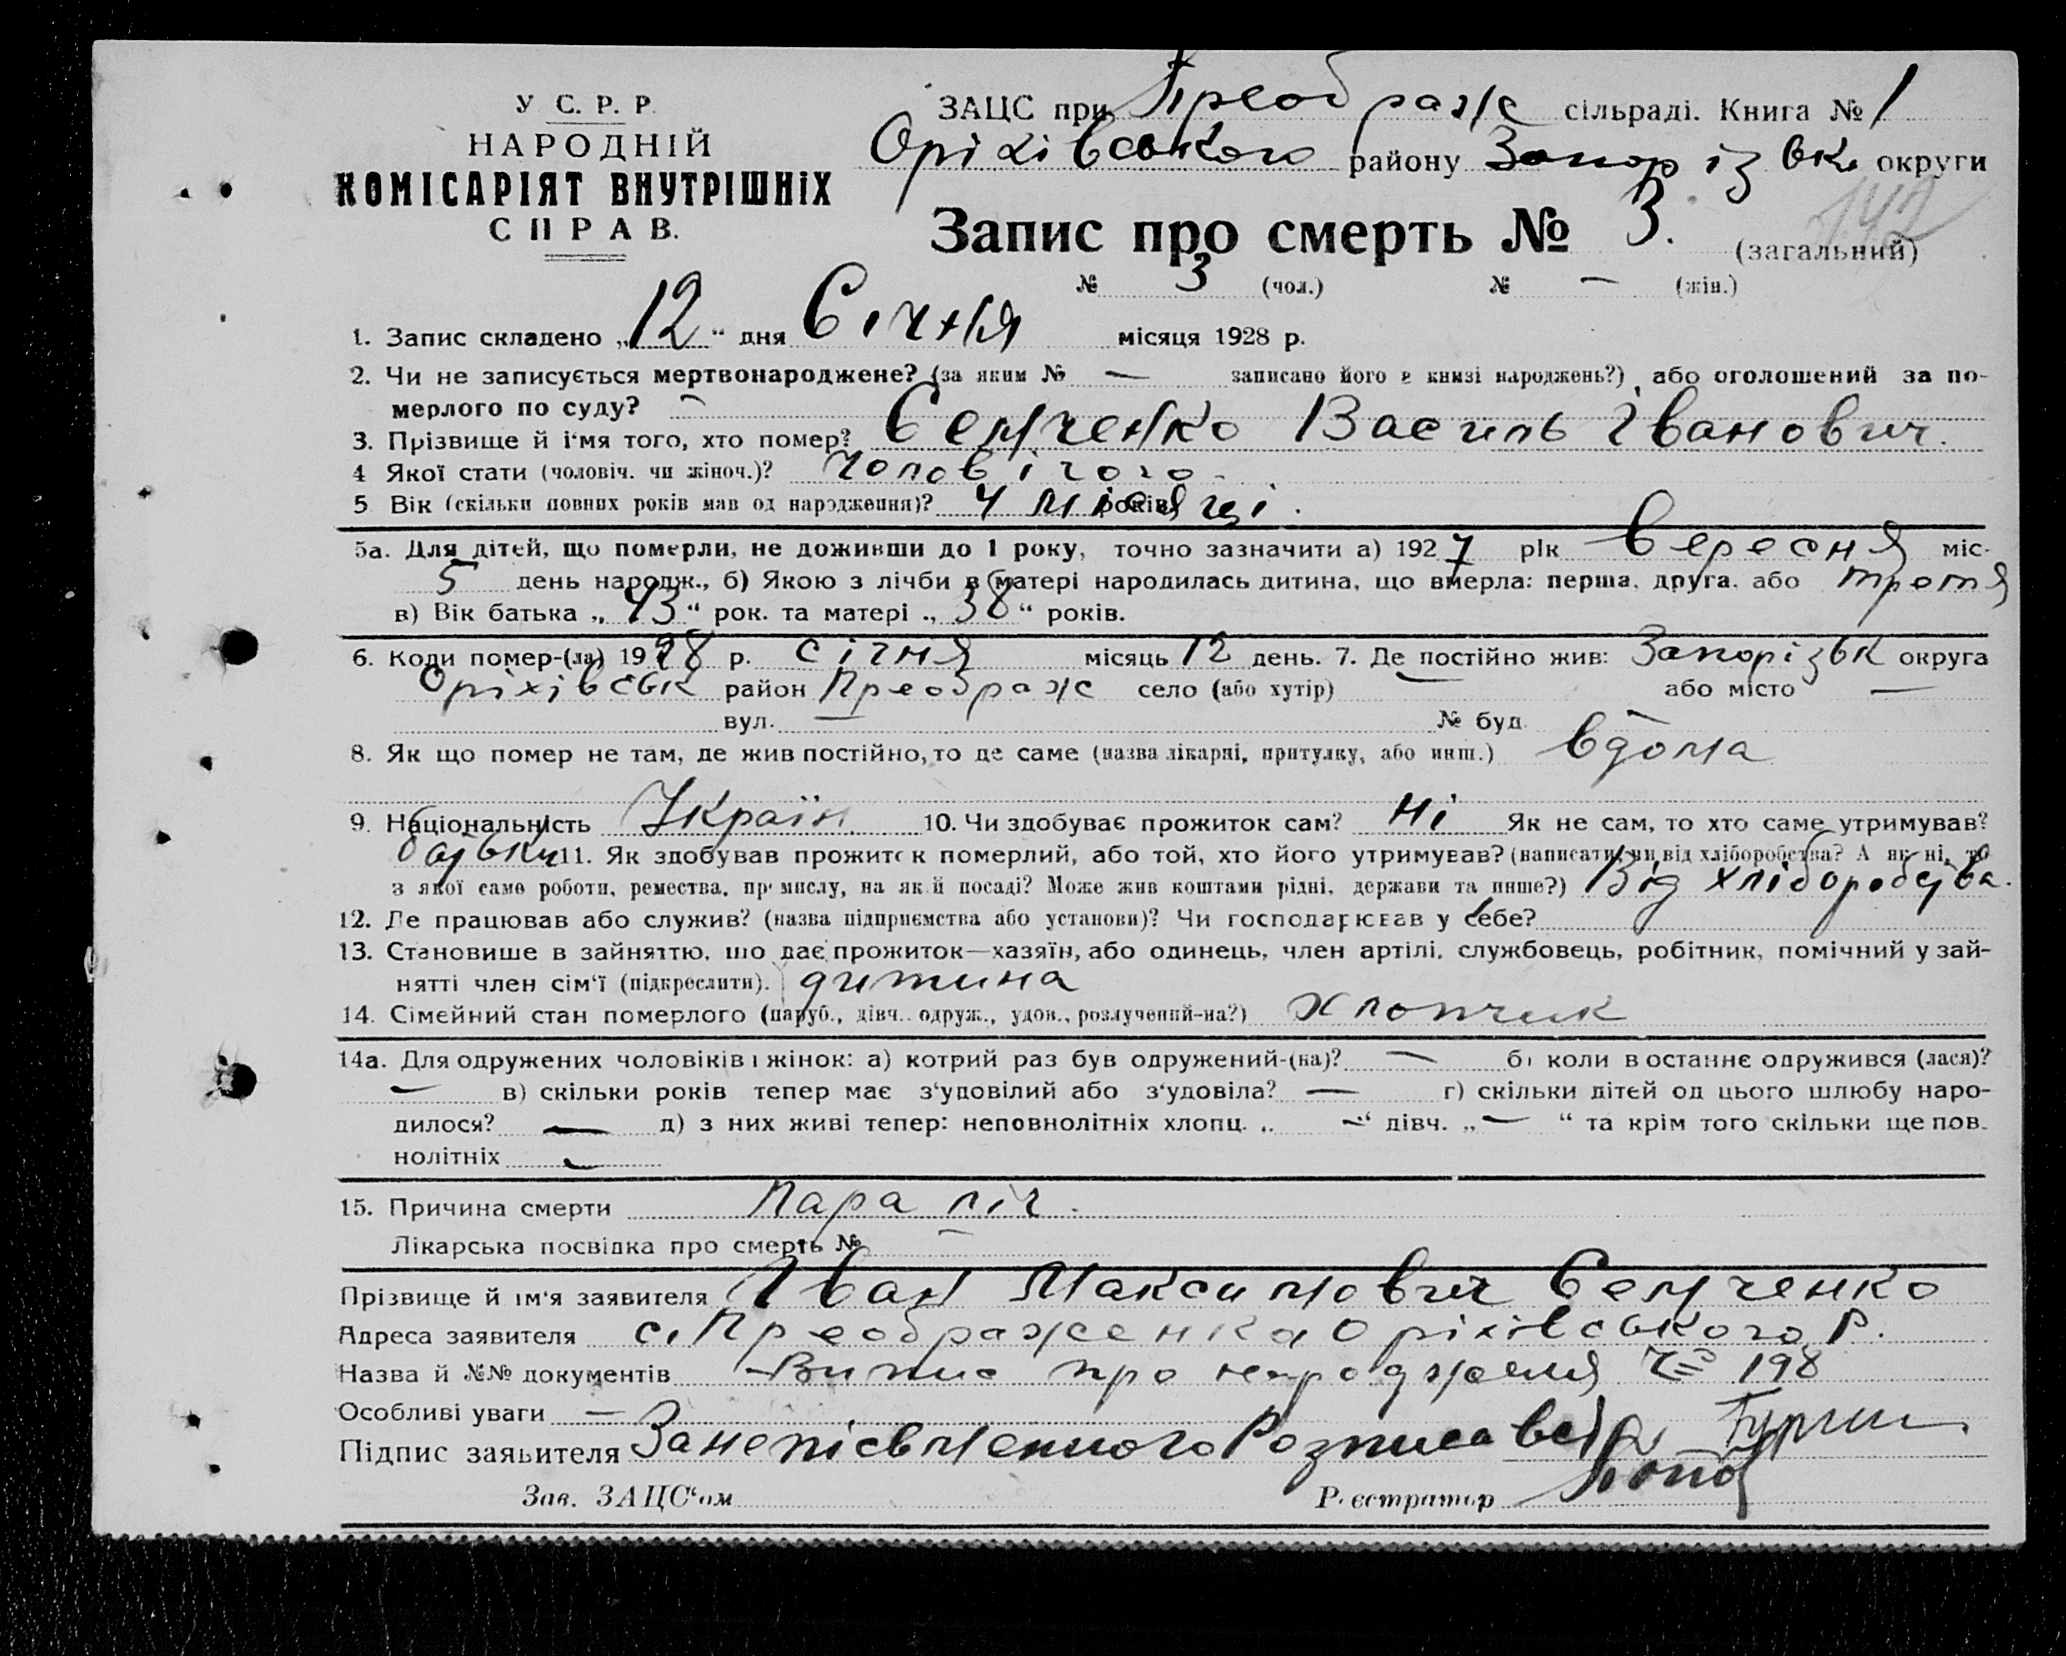 У С. Р. Р.
НАРОДНІЙ
КОМІСАРІЯТ ВНУТРІШНІХ
СПРАВ.
ЗАЦС при Преображ сільраді. Книга № 1
Оріхівського району Запорізьк округи
142
Запис про смерть № 3. (загальний)
№ 3 (чол.) № — (жін.)
1. Запис складено „12“ дня Січня місяця 1928 р.
2. Чи не записується мертвонароджене? (за яким № — записано його в книзі народжень?), або оголошений за по-
мерлого по суду? —
3. Прізвище й ім'я того, хто помер? Семченко Василь Іванович.
4 Якої стати (чоловіч. чи жіноч.)? Чоловічого
5 Вік (скільки повних років мав од народження)? 4 місяці років.
5а. Для дітей, що померли, не доживши до 1 року, точно зазначити а) 1927 рік вересня міс-
5 день народж., б) Якою з лічби в матері народилась дитина, що вмерла: перша, друга, або третя
в) Вік батька „43“ рок. та матері „38“ років.
6. Коли помер-(ла) 1928 р. січня місяць 12 день. 7. Де постійно жив: Запорізьк округа
Оріхівськ район Преображ село (або хутір) — або місто —
вул. — № буд. —
8. Як що помер не там, де жив постійно, то де саме (назва лікарні, притулку, або инш.) вдома
9. Національність Україн. 10. Чи здобуває прожиток сам? Ні Як не сам, то хто саме утримував?
батьки 11. Як здобував прожиток померлий, або той, хто його утримував? (написати, чи від хліборобства? А як ні, то
з якої саме роботи, ремества, промислу, на якій посаді? Може жив коштами рідні, держави та инше?) Від хліборобства.
12. Де працював або служив? (назва підприємства або установи)? Чи господарював у себе?
13. Становище в зайняттю, що дає прожиток—хазяїн, або одинець, член артілі, службовець, робітник, помічний у зай-
нятті член сім'ї (підкреслити). дитина
14. Сімейний стан померлого (паруб., дівч. одруж., удов., розлучений-на?) хлопчик
14а. Для одружених чоловіків і жінок: а) котрий раз був одружений-(на)? — б) коли востаннє одружився (лася)?
— в) скільки років тепер має з'удовілий або з'удовіла? — г) скільки дітей од цього шлюбу наро-
дилося? — д) з них живі тепер: неповнолітніх хлопц. „—“ дівч. „—“ та крім того скільки ще пов-
нолітніх —
15. Причина смерти Параліч.
Лікарська посвідка про смерть № —
Прізвище й ім'я заявителя Іван Максимович Семченко
Адреса заявителя с. Преображенка Оріхівського Р.
Назва й №№ документів Випис про народження 198
Особливі уваги —
Підпис заявителя За неписьменного Розписавсь
Зав. ЗАЦС'ом Реєстратор